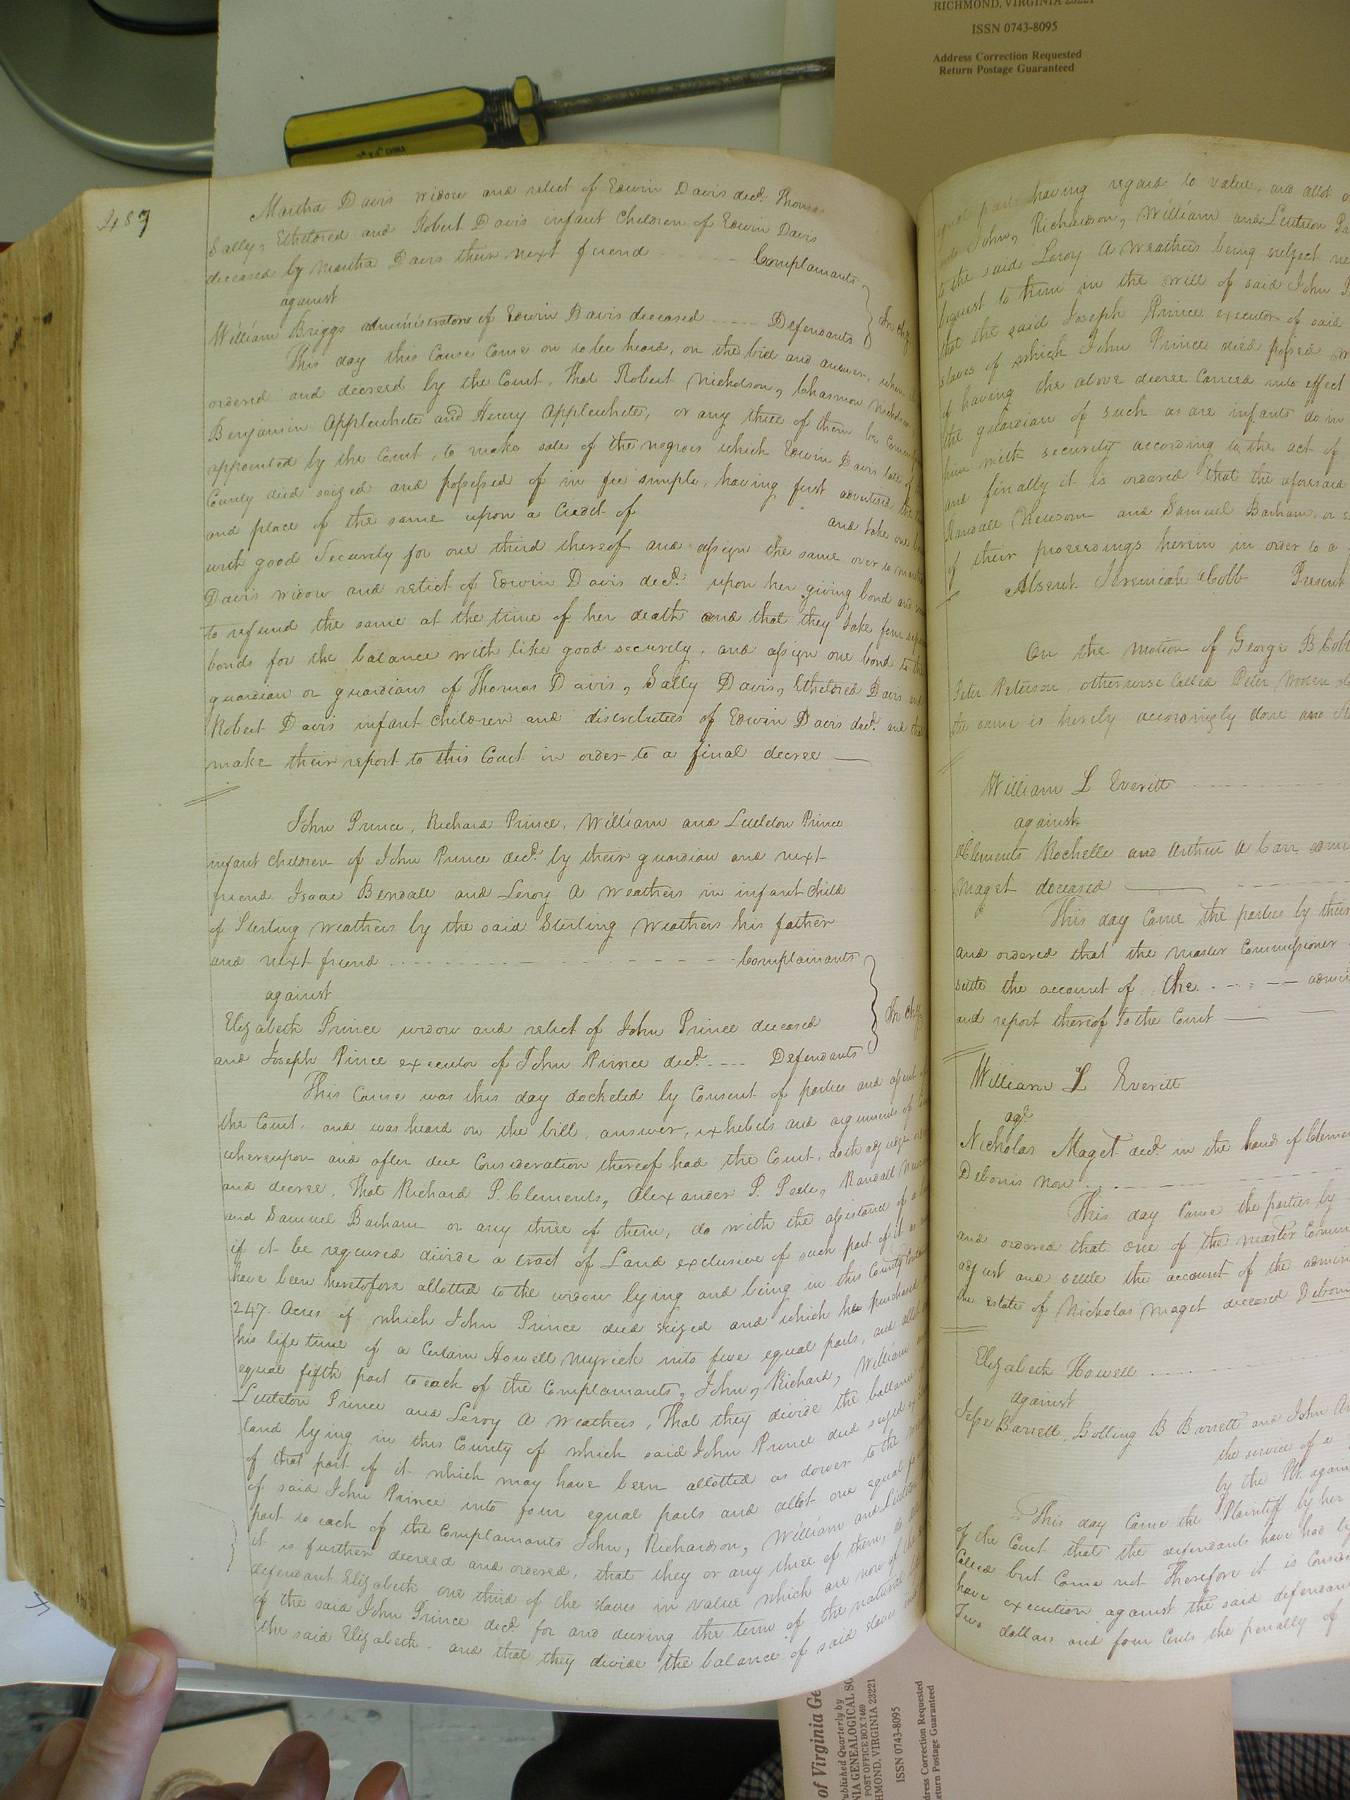 RICHMOND, VIRGINIA 23221
ISSN 0743-8095
Address Correction Requested
Return Postage Guaranteed
487
Martha Davis widow and relict of Edwin Davis decd. Thomas
Sally, Etheldred and Robert Davis infant Children of Edwin Davis
deceased by Martha Davis their next friend Complainants
against
William Briggs administrator of Edwin Davis deceased Defendants
This day this Cause Came on to be heard, on the bill and answer,
ordered and decreed by the Court, That Robert Nicholson,
Benjamin Applewhite and Henry Applewhite, or any three of them be
appointed by the Court, to make sale of the negroes which Edwin Davis late of
County died seized and possessed of in fee simple, having first advertised the
and place of the same upon a Credit of and take one
with good Security for one third thereof and assign the same over to
Davis widow and relict of Edwin Davis decd. upon her giving bond and
to refund the same at the time of her death and that they take
bonds for the balance with like good security, and assign one bond to the
guardian or guardians of Thomas Davis, Sally Davis, Etheldred Davis and
Robert Davis infant Children and distributees of Edwin Davis decd. and that
make their report to this Court in order to a final decree
John Prince, Richard Prince, William and Littleton Prince
infant Children of John Prince decd. by their guardian and next
friend Isaac Bendall and Leroy A Weathers in infant child
of Sterling Weathers by the said Sterling Weathers his father
and next friend Complainants
against
Elizabeth Prince widow and relict of John Prince deceased
and Joseph Prince executor of John Prince decd. Defendants
This Cause was this day docketed by Consent of parties and
the Court, and was heard on the bill, answer, exhibits and arguments of
whereupon and after due Consideration thereof had the Court, doth adjudge
and decree, That Richard P. Clements, Alexander P. Peete, Randall
and Samuel Barham or any three of them, do with the assistance of a
if it be required divide a tract of Land exclusive of such part of it as
have been heretofore allotted to the widow lying and being in this County
247 Acres of which John Prince died seized and which he purchased
his life time of a Certain Howell Myrick into five equal parts, and allot
equal fifth part to each of the Complainants, John, Richard, William
Littleton Prince and Leroy A Weathers, That they divide the ballance
land lying in this County of which said John Prince died seized
of that part of it which may have been allotted as dower to the
of said John Prince into four equal parts and allot one equal
part to each of the Complainants John, Richardson, William and
it is further decreed and ordered, that they or any three of them,
defendant Elizabeth one third of the slaves in value which are now of the
of the said John Prince decd. for and during the term of the natural
the said Elizabeth and that they divide the balance of said slaves
having regard to value, and allot
John, Richardson, William and Littleton
to the said Leroy A Weathers being subject
bequest to them in the will of said John
that the said Joseph Prince executor of said
slaves of which John Prince died
of having the above decree Carried into effect
the guardian of such as are infants do in
him with security according to the act of
and finally it is ordered that the aforesaid
Randall Newsom and Samuel Barham, or
of their proceedings herein in order to a
Absent Jeremiah Cobb Present
On the motion of George B Cobb
Peter Peterson, otherwise Called Peter
the same is hereby accordingly done and
William L Everitt
against
Clements Rochelle and Arthur A Carr
Maget deceased
This day Came the parties by their
and ordered that the master Commissioner
settle the account of the
and report thereof to the Court
William L Everitt
agt.
Nicholas Maget decd. in the hands of
Debonis non
This day Came the parties by
and ordered that one of the master
adjust and settle the account of the
the estate of Nicholas Maget deceased
Elizabeth Howell
against
Jesse Barrett, Bolling B Barrett and John
the service of a
by the
This day Came the Plaintiff by her
of the Court that the defendants have had
Called but Came not Therefore it is
have execution against the said
Two dollars and four Cents the penalty of
of Virginia
Published Quarterly by
POST OFFICE BOX 7469
RICHMOND, VIRGINIA 23221
ISSN 0743-8095
Address Correction Requested
Return Postage Guaranteed